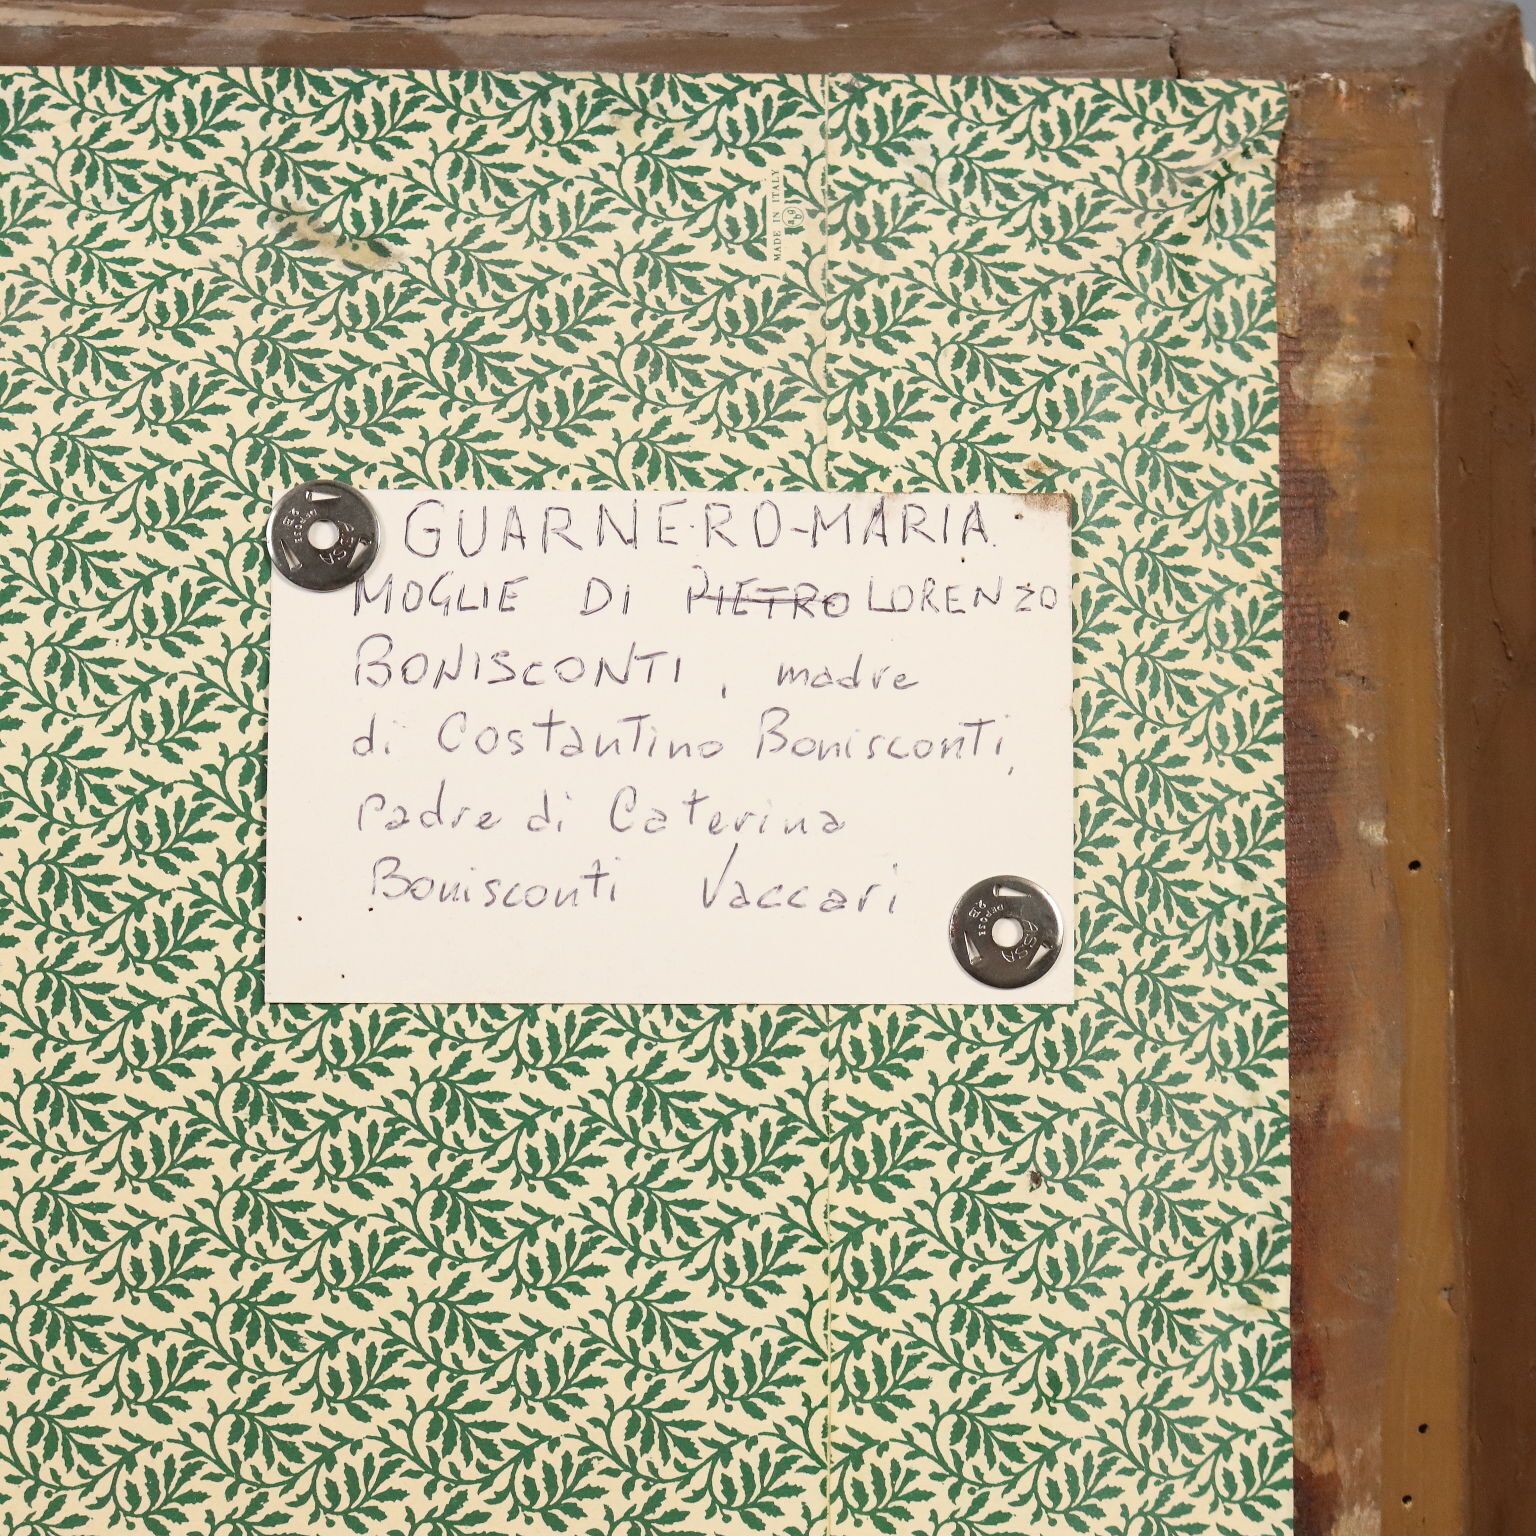 MADE IN ITALY
GUARNERO-MARIA.
MOGLIE DI PIETRO LORENZO
BONISCONTI, madre
di Costantino Bonisconti,
padre di Caterina
Bonisconti Vaccari
ASSA
DEPOSE
2B
ASSA
DEPOSE
2B